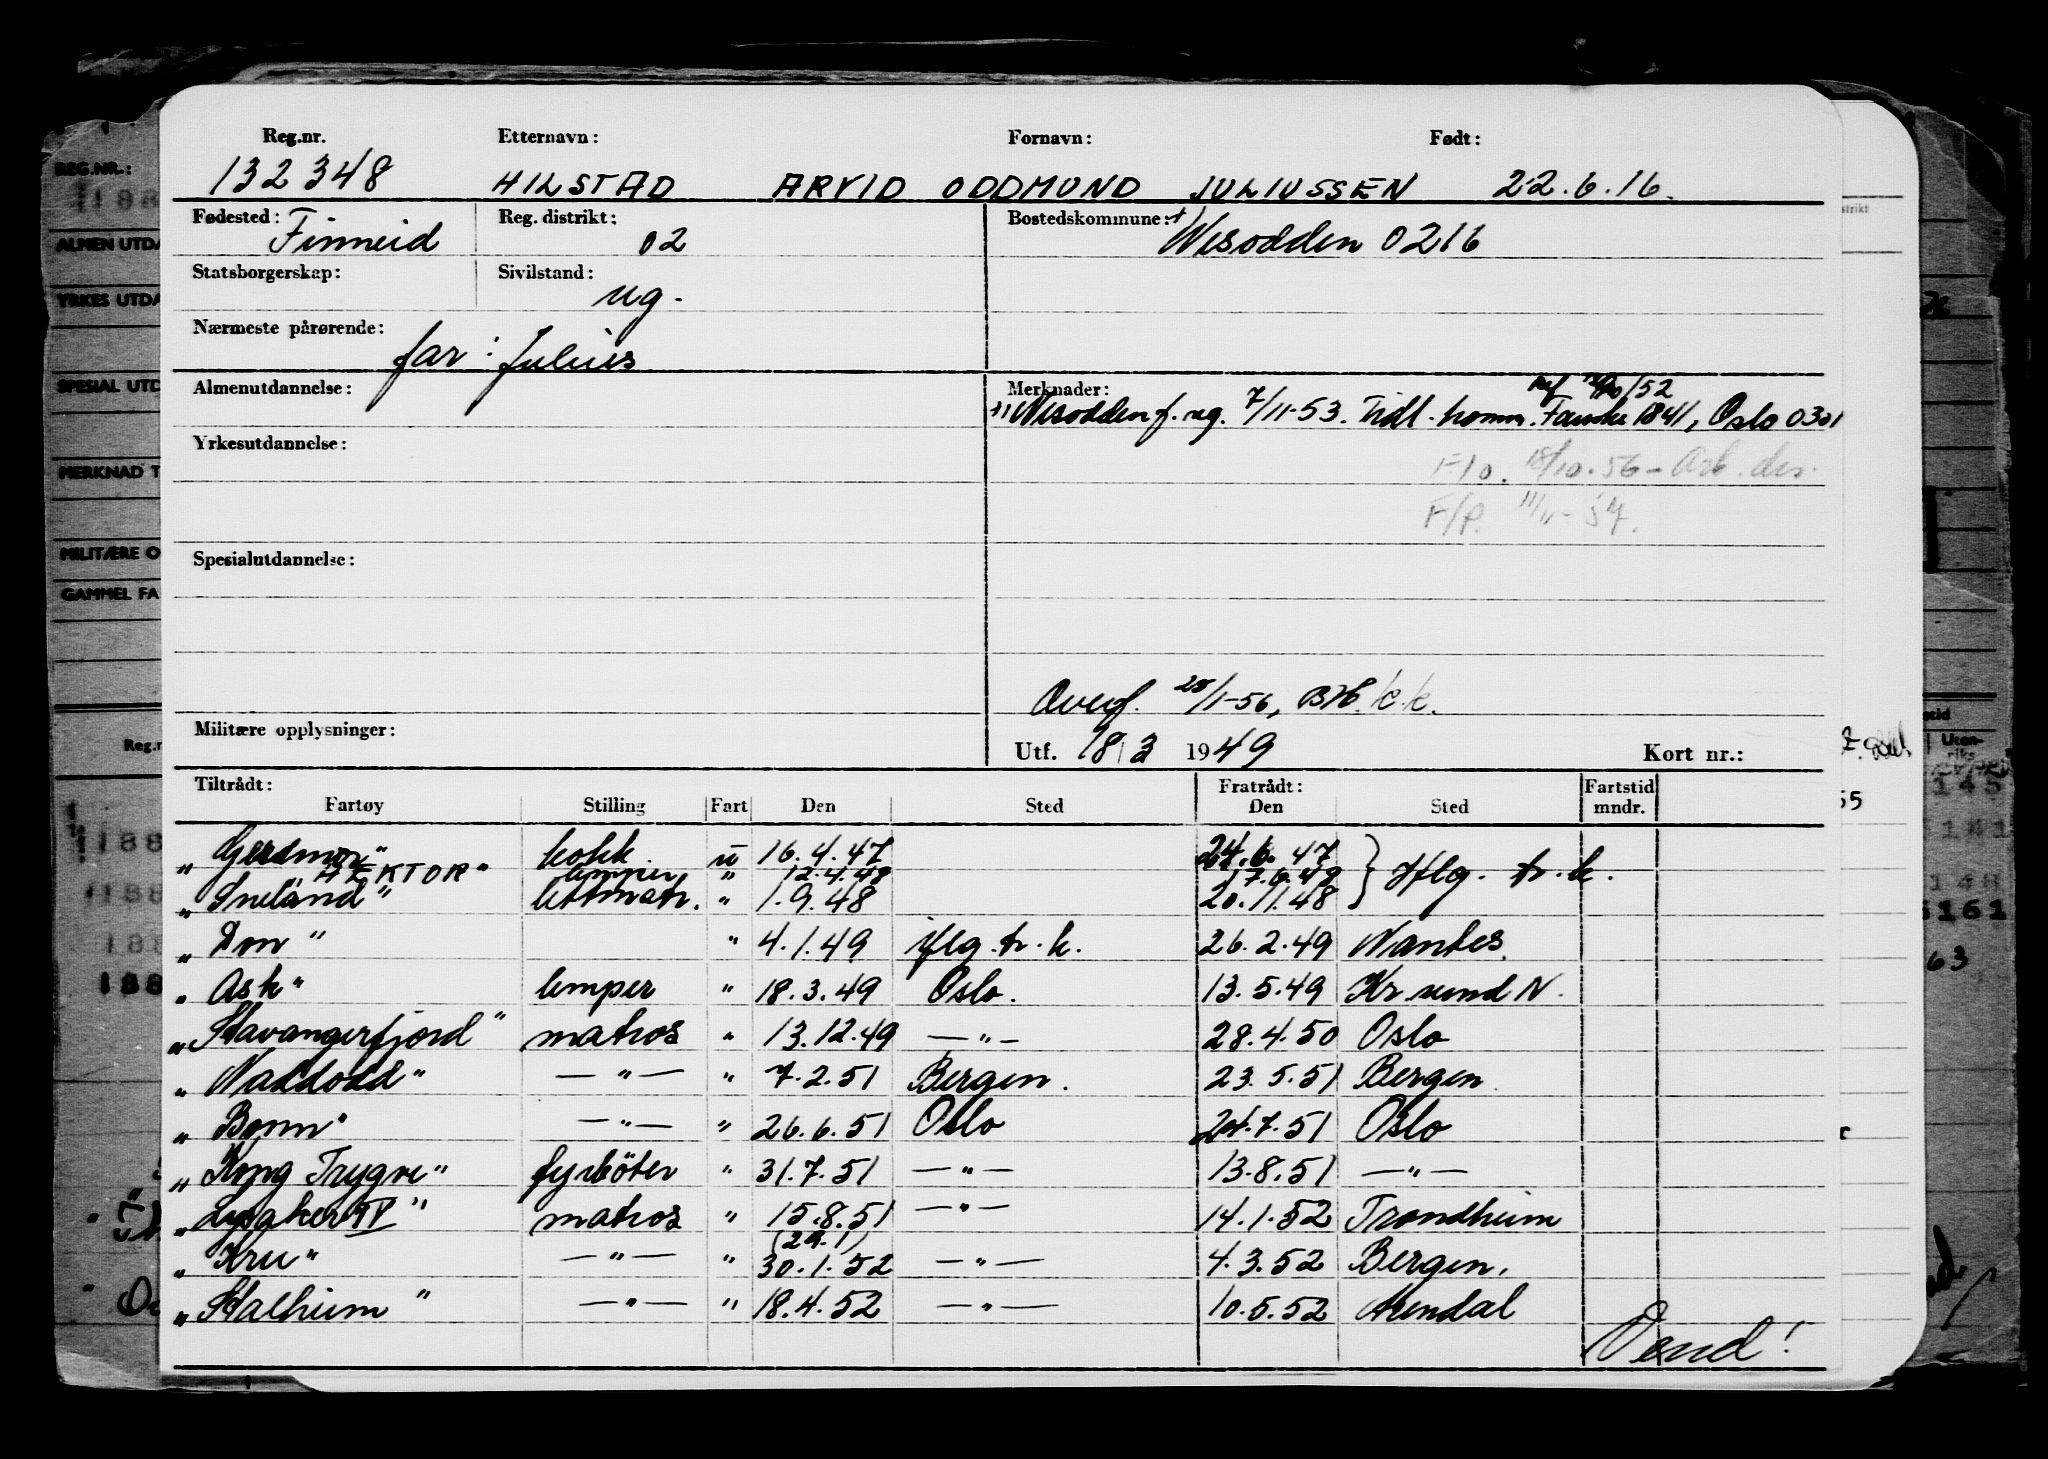 Reg.nr. Etternavn: Fornavn: Født:
132348 HILSTAD ARVID ODDMUND JULIUSSEN 22.6.16.
Fødested: Finneid Reg. distrikt: 02 Bostedskommune: Nesodden 0216
Statsborgerskap: Sivilstand: ug.
Nærmeste pårørende: far: Julius
Almenutdannelse: Merknader: /52
Nesodden f. ug. 7/11-53. Tidl. komm. Fauske 1841, Oslo 0301
Yrkesutdannelse: F/o. 18/10.56 - Arb. dir.
F/p. 11/11-57.
Spesialutdannelse:
Overf. 25/1-56, k.k.
Militære opplysninger: Utf. 18/3 1949 Kort nr.:
Tiltrådt: Fratrådt: Fartstid
Fartøy Stilling Fart Den Sted Den Sted mndr.
"Gerdmor" kokk. u 16.4.47 24.6.47 } Iflg. tr.k.
"HEKTOR" lemper " 12.4.48 17.6.48
"Sneland" lettmatr. " 1.9.48 20.11.48
"Don" " 4.1.49 iflg. tr.k. 26.2.49 Nantes
"Ask" lemper " 18.3.49 Oslo. 13.5.49 Kr.sund N.
"Stavangerfjord" matros " 13.12.49 —"— 28.4.50 Oslo
"Naddodd" —"— " 7.2.51 Bergen. 23.5.51 Bergen
"Bomn" —"— " 26.6.51 Oslo 24.7.51 Oslo
"Kong Trygve" fyrböter " 31.7.51 —"— 13.8.51 —"—
"Lysaker IV" matros " 15.8.51 —"— 14.1.52 Trondheim
(29.1)
"Kru" —"— " 30.1.52 —"— 4.3.52 Bergen.
"Stalheim" —"— " 18.4.52 —"— 10.5.52 Arendal
Vend!
REG.NR.:
ALMEN UTDA
YRKES UTDA
SPESIAL UTD
MERKNAD T
MILITÆRE O
GAMMEL FA